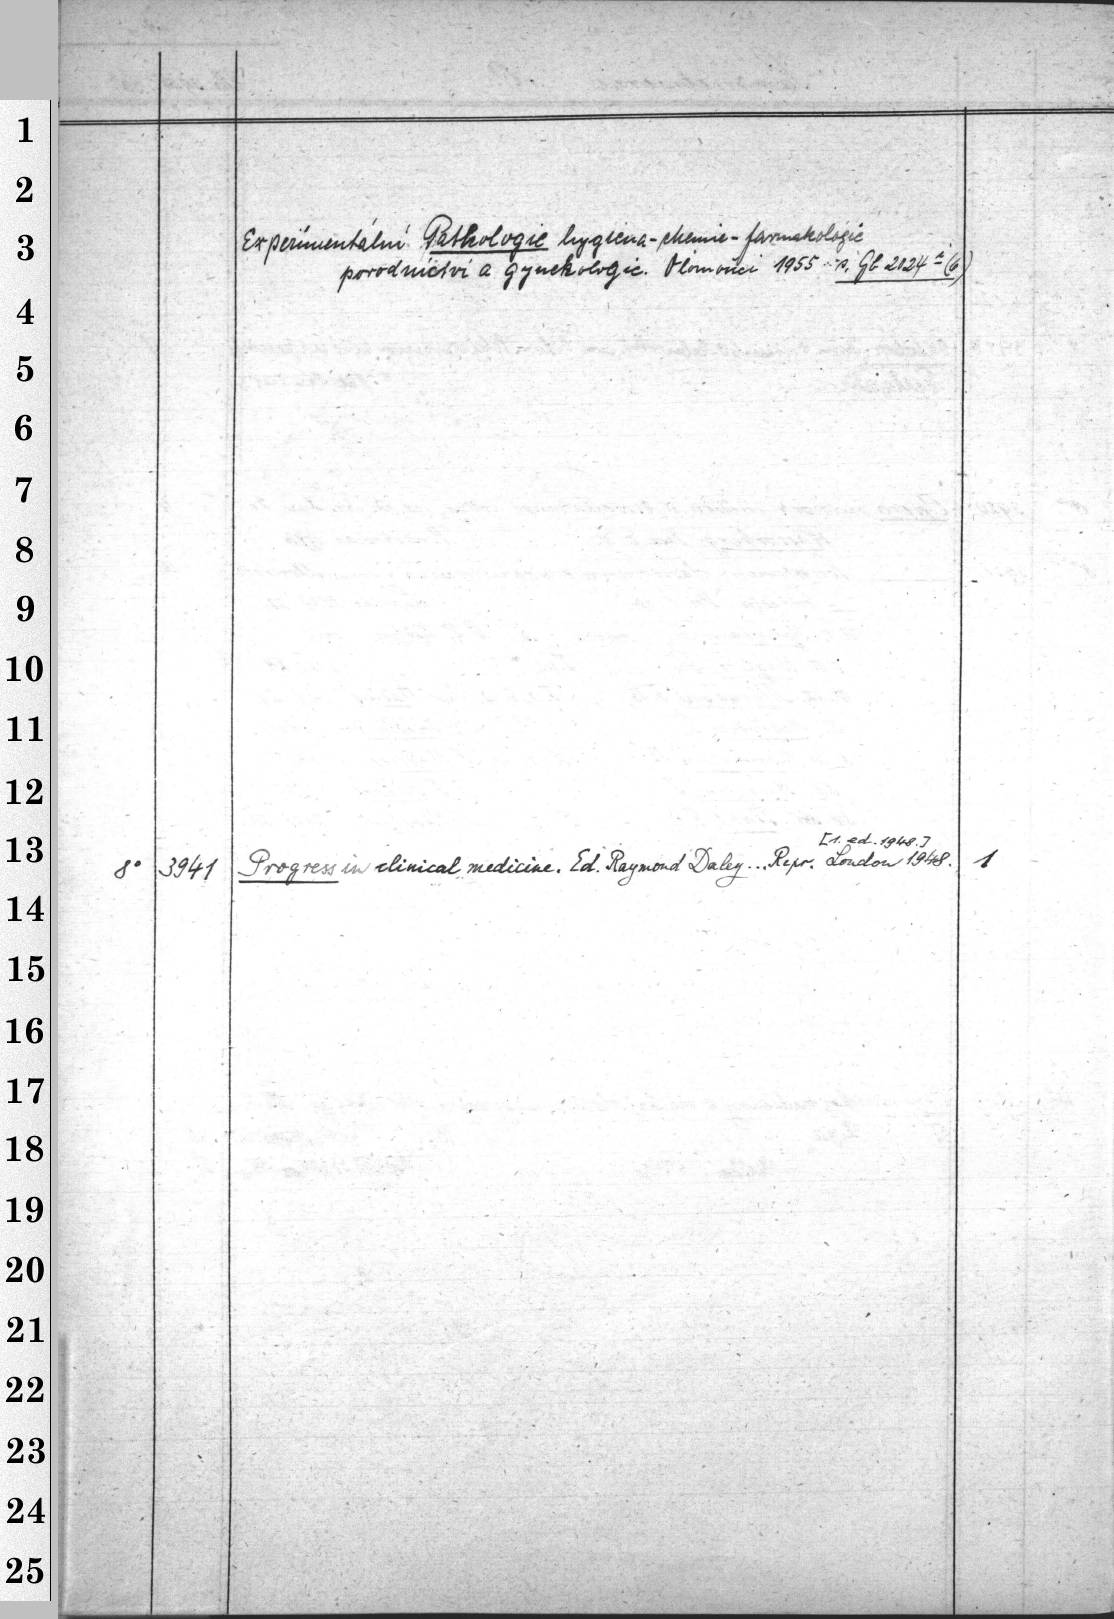 1
2
3
Experimentální Pathologie hygiena-chemie-farmakologie
porodnictví a gynekologie. Olomouci 1955 s. Gb 2124 (6)
4
5
6
7
8
9
10
11
12
13
[1. ed. 1948.]
8° 3941 Progress in clinical medicine. Ed. Raymond Daley... Repr. London 1948. 1
14
15
16
17
18
19
20
21
22
23
24
25